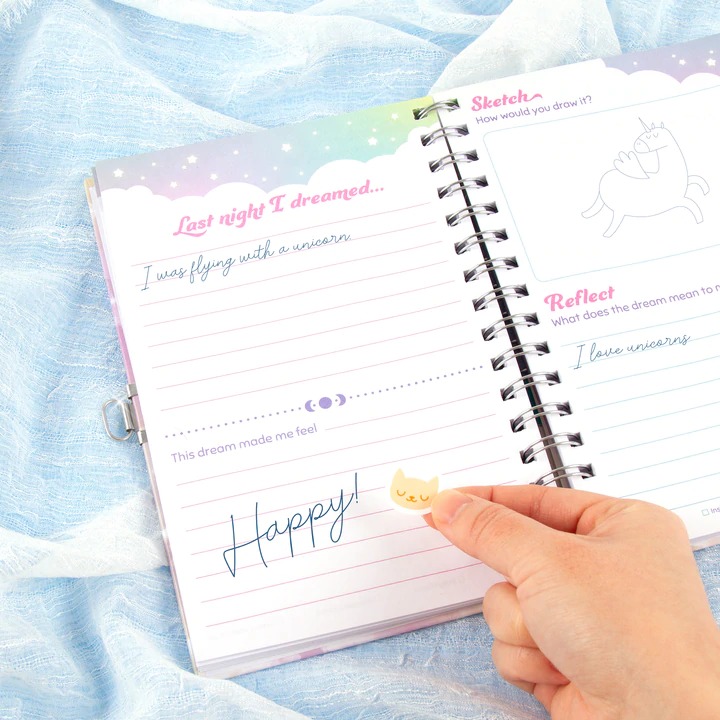 Last night I dreamed...
I was flying with a unicorn.
This dream made me feel
Happy!
Sketch
How would you draw it?
Reflect
What does the dream mean to
I love unicorns